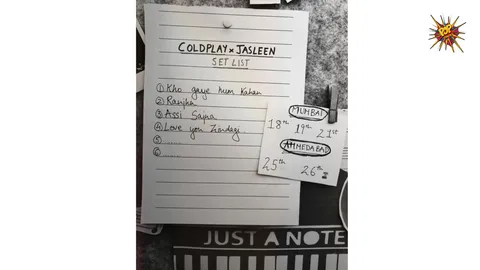 COLDPLAY x JASLEEN
SET LIST
① Kho gaye hum Kahan
② Ranjha
③ Assi Sajna
④ Love you Zindagi
⑤ ......
⑥ ......
MUMBAI
18th 19th 21st
AHMEDABAD
25th 26th
JUST A NOTE
POP